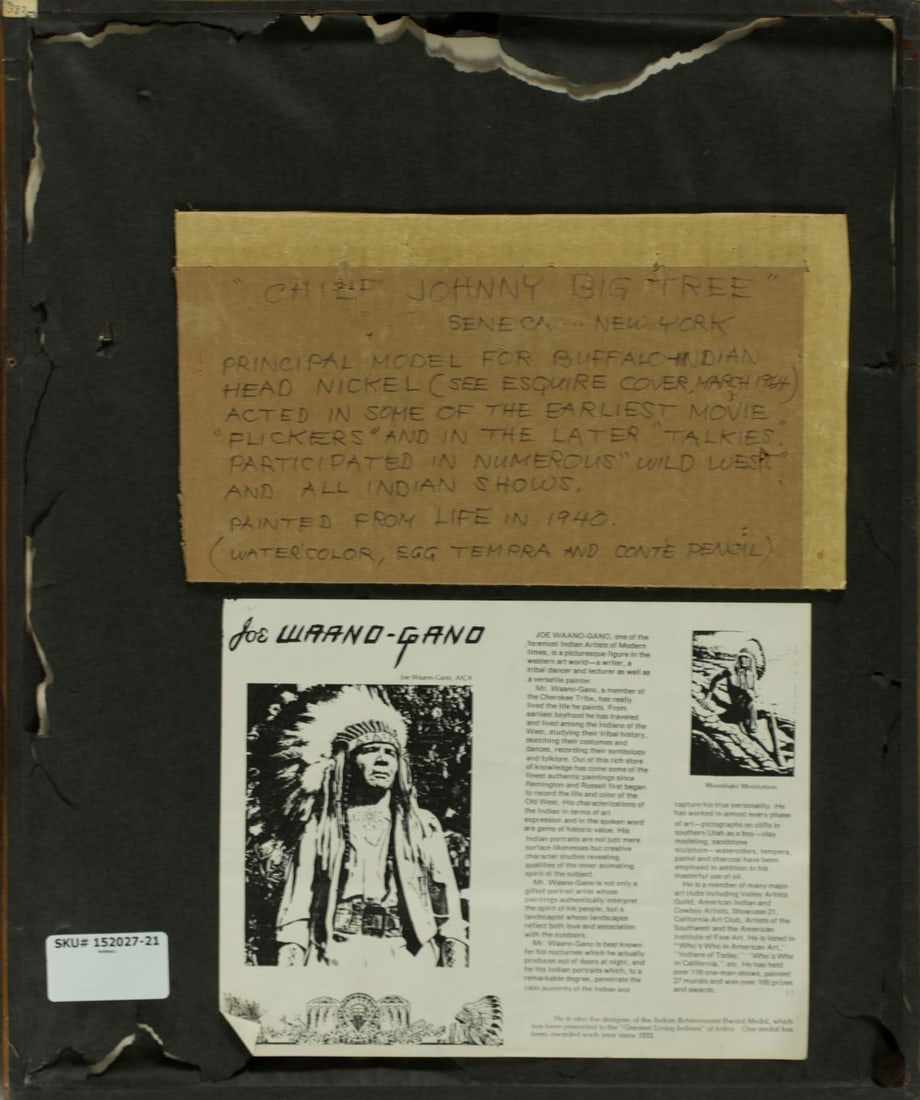 382
" CHIEF JOHNNY BIG TREE "
SENECA ... NEW YORK
PRINCIPAL MODEL FOR BUFFALO-INDIAN
HEAD NICKEL (SEE ESQUIRE COVER, MARCH 1964)
ACTED IN SOME OF THE EARLIEST MOVIE
"FLICKERS" AND IN THE LATER "TALKIES".
PARTICIPATED IN NUMEROUS "WILD WEST"
AND ALL INDIAN SHOWS.
PAINTED FROM LIFE IN 1940.
(WATERCOLOR, EGG TEMPRA AND CONTE PENCIL)
Joe WAANO-GANO
Joe Waano-Gano, AICA
JOE WAANO-GANO, one of the
foremost Indian Artists of Modern
times, is a picturesque figure in the
western art world—a writer, a
tribal dancer and lecturer as well as
a versatile painter.
Mr. Waano-Gano, a member of
the Cherokee Tribe, has really
lived the life he paints. From
earliest boyhood he has traveled
and lived among the Indians of the
West, studying their tribal history,
sketching their costumes and
dances, recording their symbology
and folklore. Out of this rich store
of knowledge has come some of the
finest authentic paintings since
Remington and Russell first began
to record the life and color of the
Old West. His characterizations of
the Indian in terms of art
expression and in the spoken word
are gems of historic value. His
Indian portraits are not just mere
surface likenesses but creative
character studies revealing
qualities of the inner animating
spirit of the subject.
Mr. Waano-Gano is not only a
gifted portrait artist whose
paintings authentically interpret
the spirit of his people, but a
landscapist whose landscapes
reflect both love and association
with the outdoors.
Mr. Waano-Gano is best known
for his nocturnes which he actually
produces out of doors at night, and
for his Indian portraits which, to a
remarkable degree, penetrate the
calm austerity of the Indian and
Moonlight Meditation
capture his true personality. He
has worked in almost every phase
of art—pictographs on cliffs in
southern Utah as a boy—clay
modeling, sandstone
sculpture—watercolors, tempera,
pastel and charcoal have been
employed in addition to his
masterful use of oil.
He is a member of many major
art clubs including Valley Artists
Guild, American Indian and
Cowboy Artists, Showcase 21,
California Art Club, Artists of the
Southwest and the American
Institute of Fine Art. He is listed in
"Who's Who in American Art,"
"Indians of Today," "Who's Who
in California," etc. He has held
over 118 one-man-shows, painted
27 murals and won over 100 prizes
and awards.
He is also the designer of the Indian Achievement Award Medal, which
has been presented to the "Greatest Living Indians" of today. One medal has
been awarded each year since 1933.
SKU# 152027-21